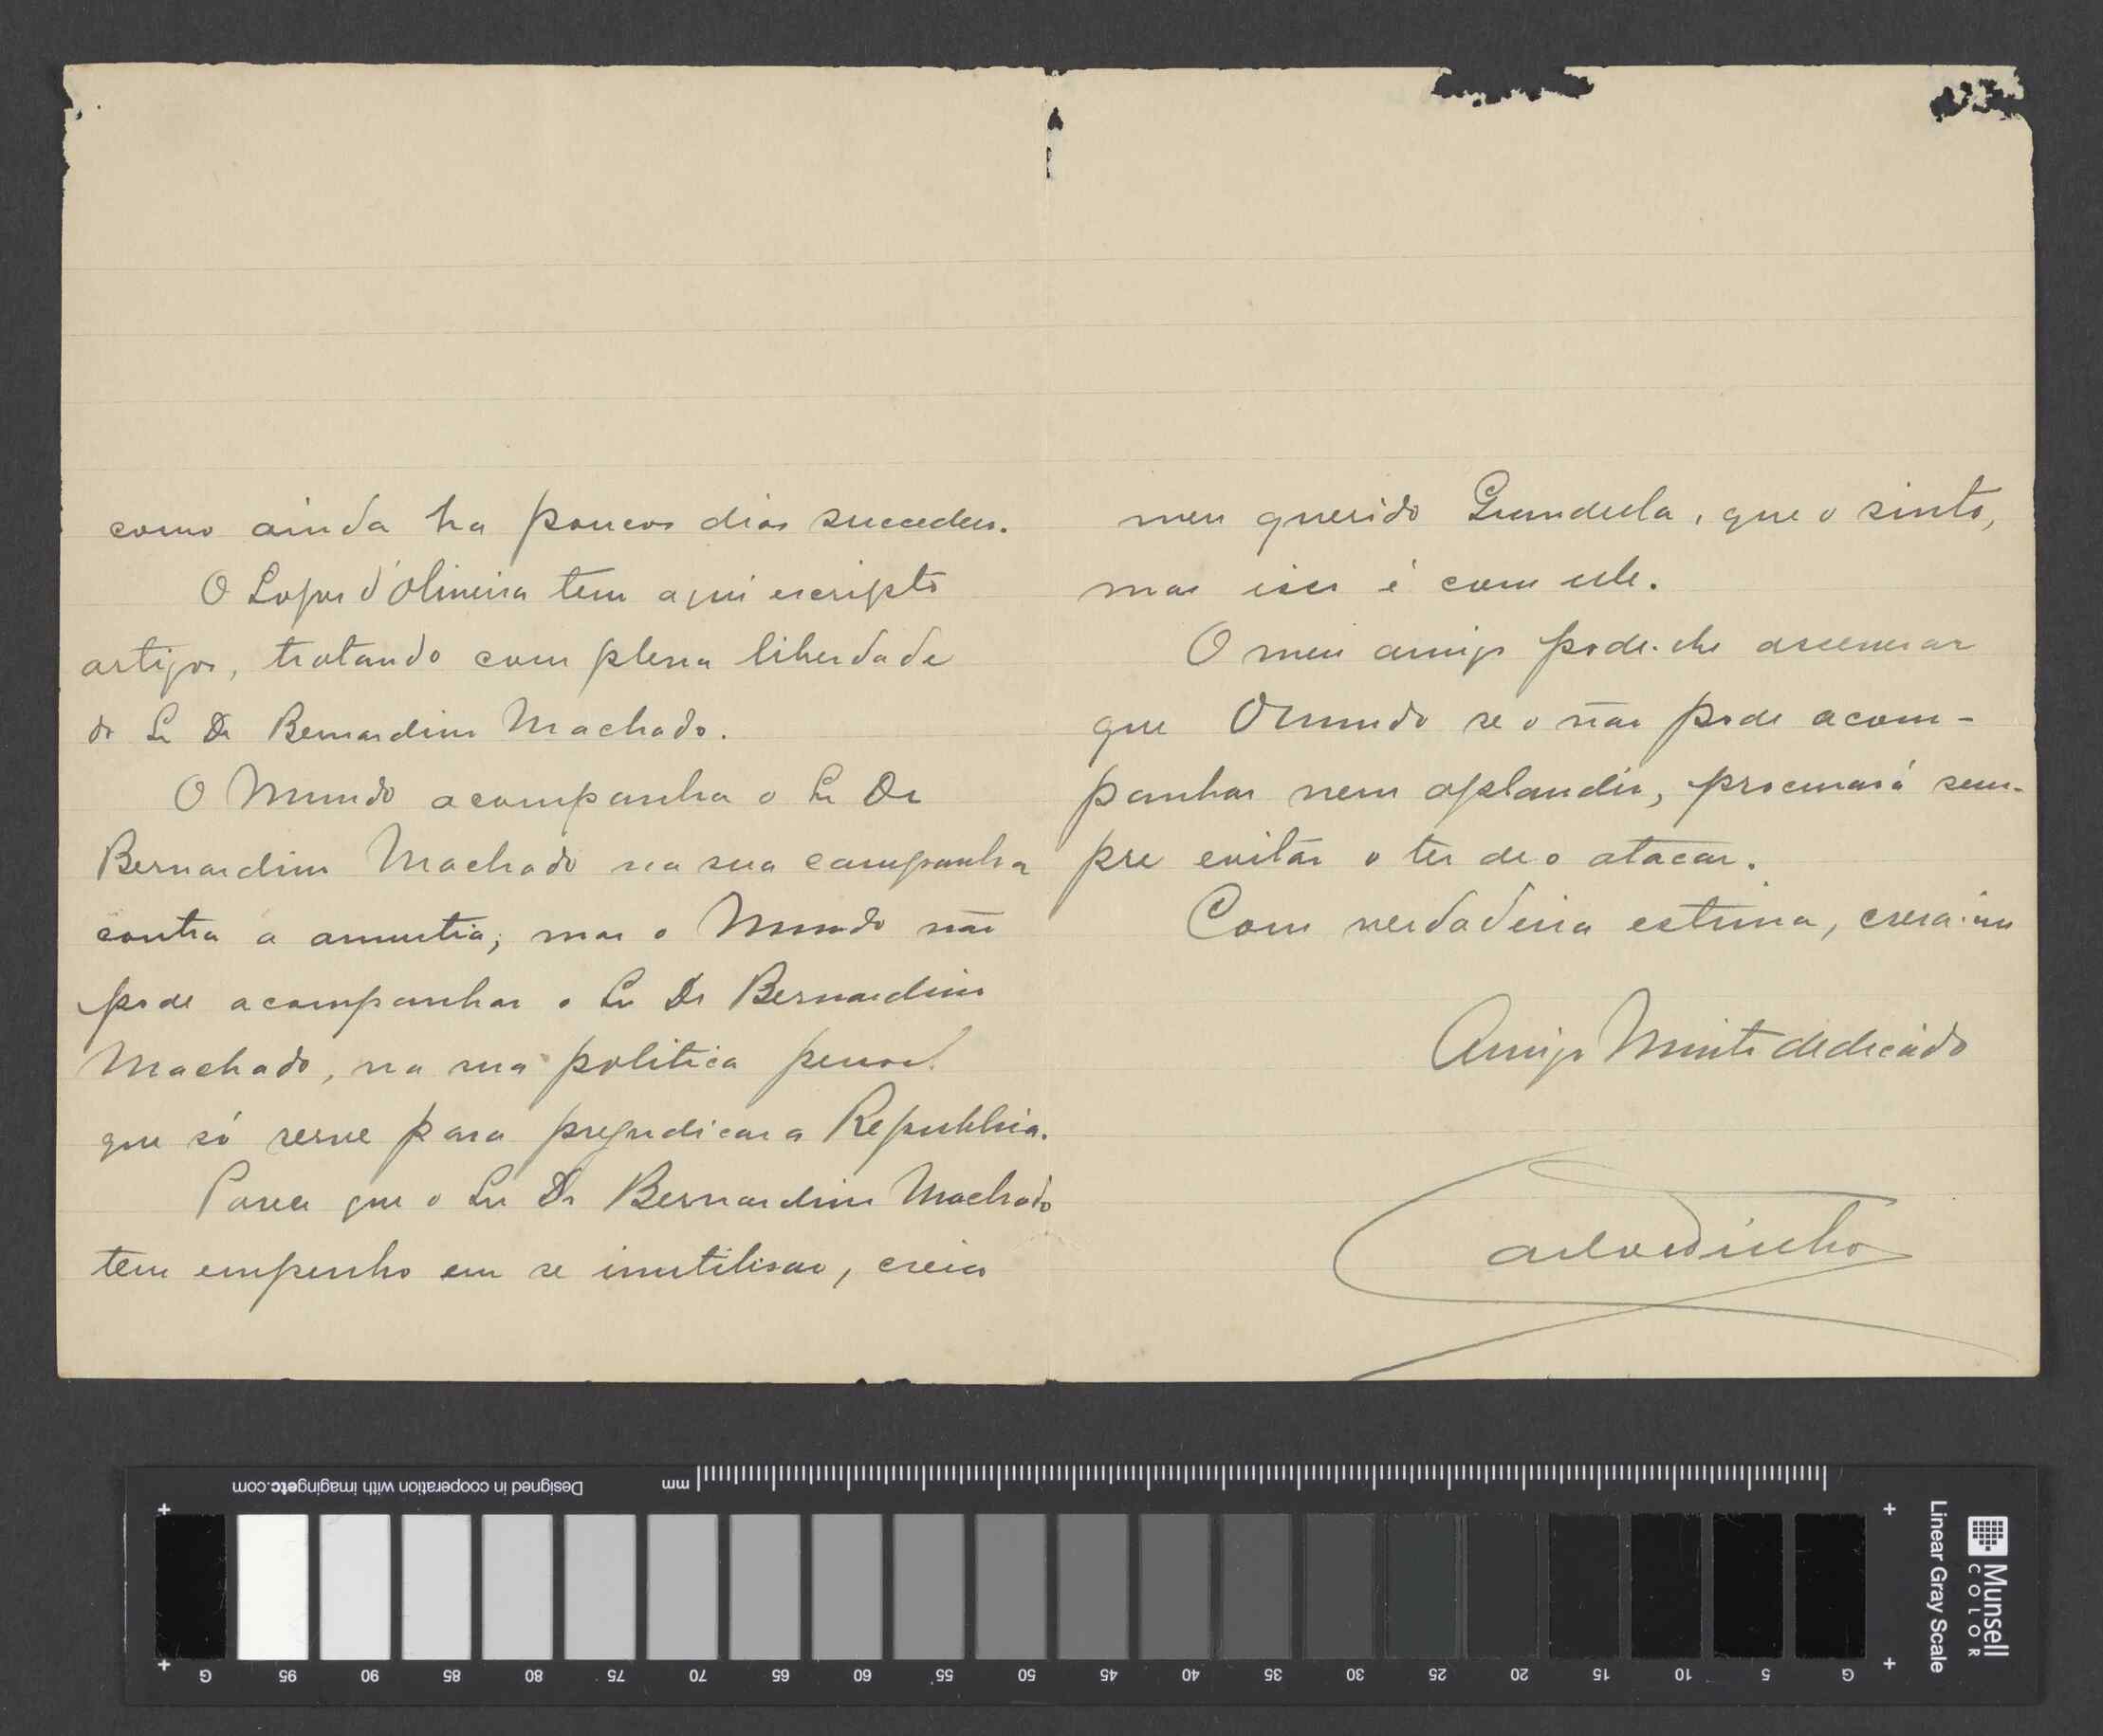 como ainda ha poucos dias succedeu.
O Lopes d'Oliveira tem aqui escripto
artigos, tratando com plena liberdade
do Sr Dr Bernardino Machado.
O Mundo acompanha o Sr Dr
Bernardino Machado na sua campanha
contra a amnistia; mas o Mundo não
pode acompanhar o Sr Dr Bernardino
Machado, na sua politica pessoal
que só serve para prejudicar a Republica.
Parece que o Sr Dr Bernardino Machado
tem empenho em se inutilisar, creia
meu querido que o sinto,
mas isso é com elle.
O meu amigo pode-lhe assegurar
que O Mundo se o não pode acom-
panhar nem aplaudir, procurará sem-
pre evitar o ter de o atacar.
Com verdadeira estima, creia-me
Amigo Muito dedicado
Designed in cooperation with imagingetc.com
mm
G 95 90 85 80 75 70 65 60 55 50 45 40 35 30 25 20 15 10 5 G
Linear Gray Scale
Munsell
COLOR